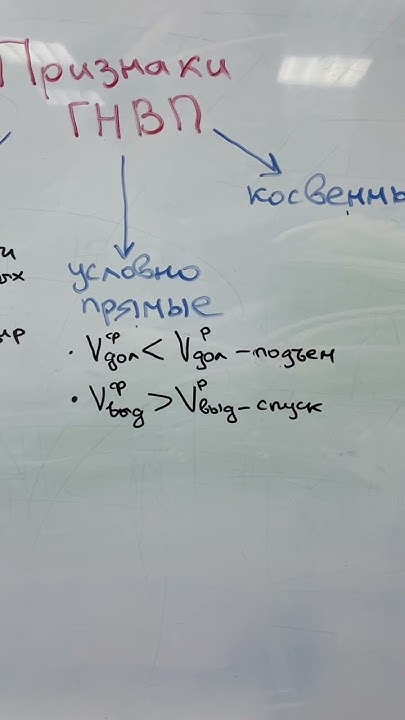 Признаки
ГНВП
косвенны
условно
прямые
· Vдол^ф < Vдол^р – подъем
· Vвыд^ф > Vвыд^р – спуск